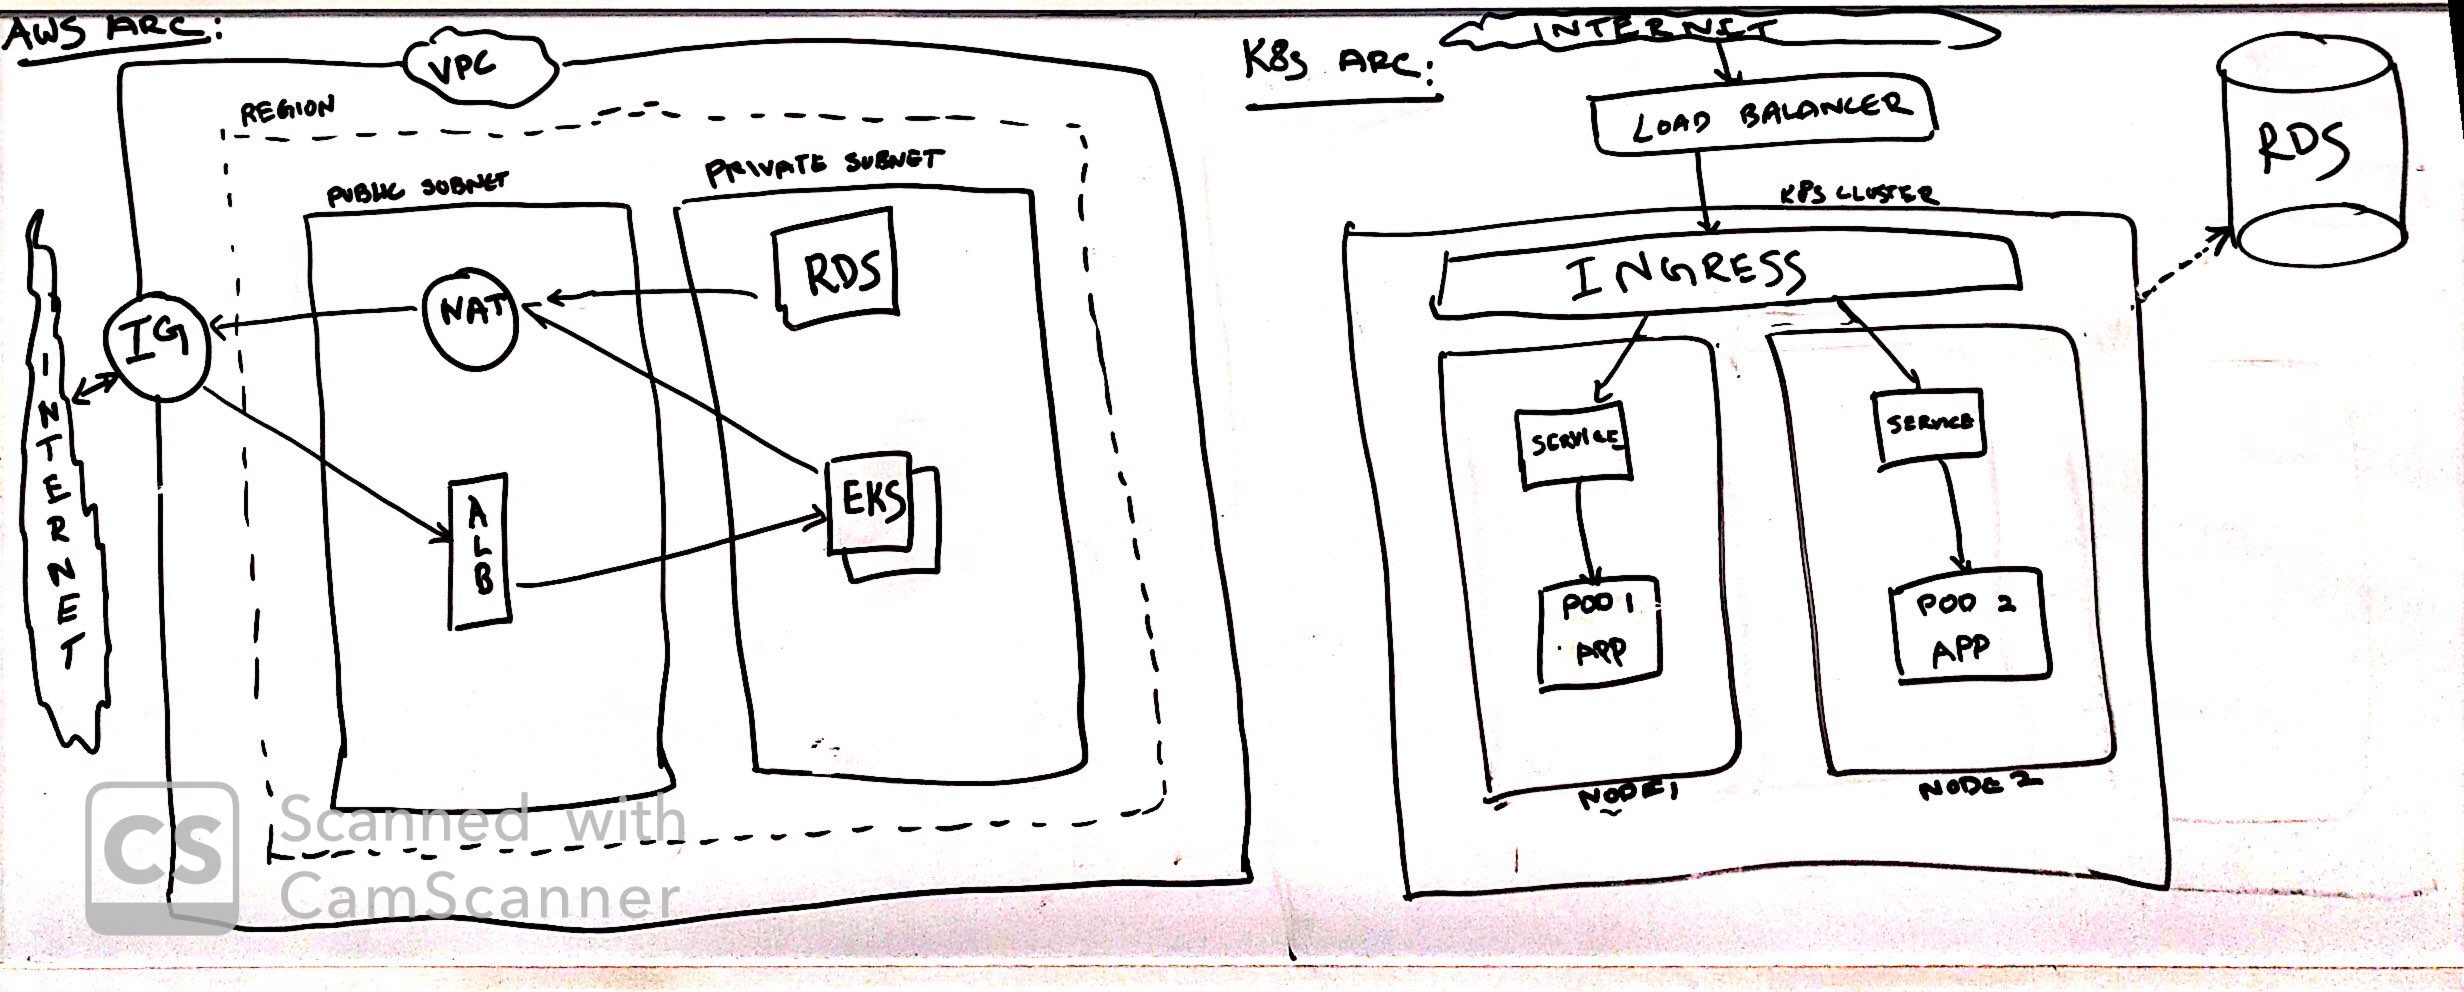 AWS ARC:
VPC
REGION
PUBLIC SUBNET
PRIVATE SUBNET
INTERNET
IG
NAT
RDS
ALB
EKS
K8s ARC:
INTERNET
LOAD BALANCER
K8S CLUSTER
INGRESS
SERVICE
SERVICE
POD 1
APP
POD 2
APP
NODE 1
NODE 2
RDS
CS
Scanned with
CamScanner